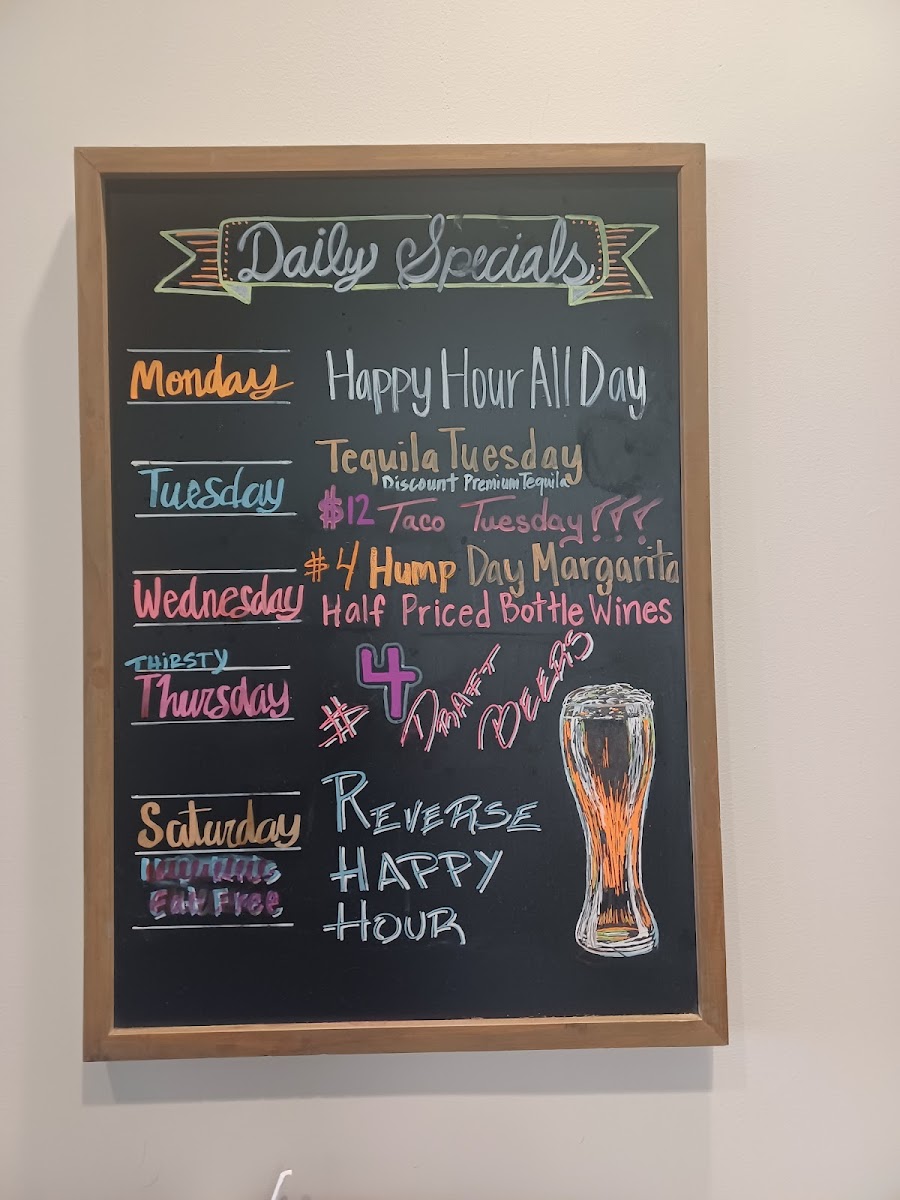 Daily Specials
Monday
Happy Hour All Day
Tuesday
Tequila Tuesday
Discount Premium Tequila
$12 Taco Tuesday!!!
Wednesday
$4 Hump Day Margarita
Half Priced Bottle Wines
THIRSTY
Thursday
$4 DRAFT BEERS
Saturday
Eat Free
REVERSE
HAPPY
HOUR